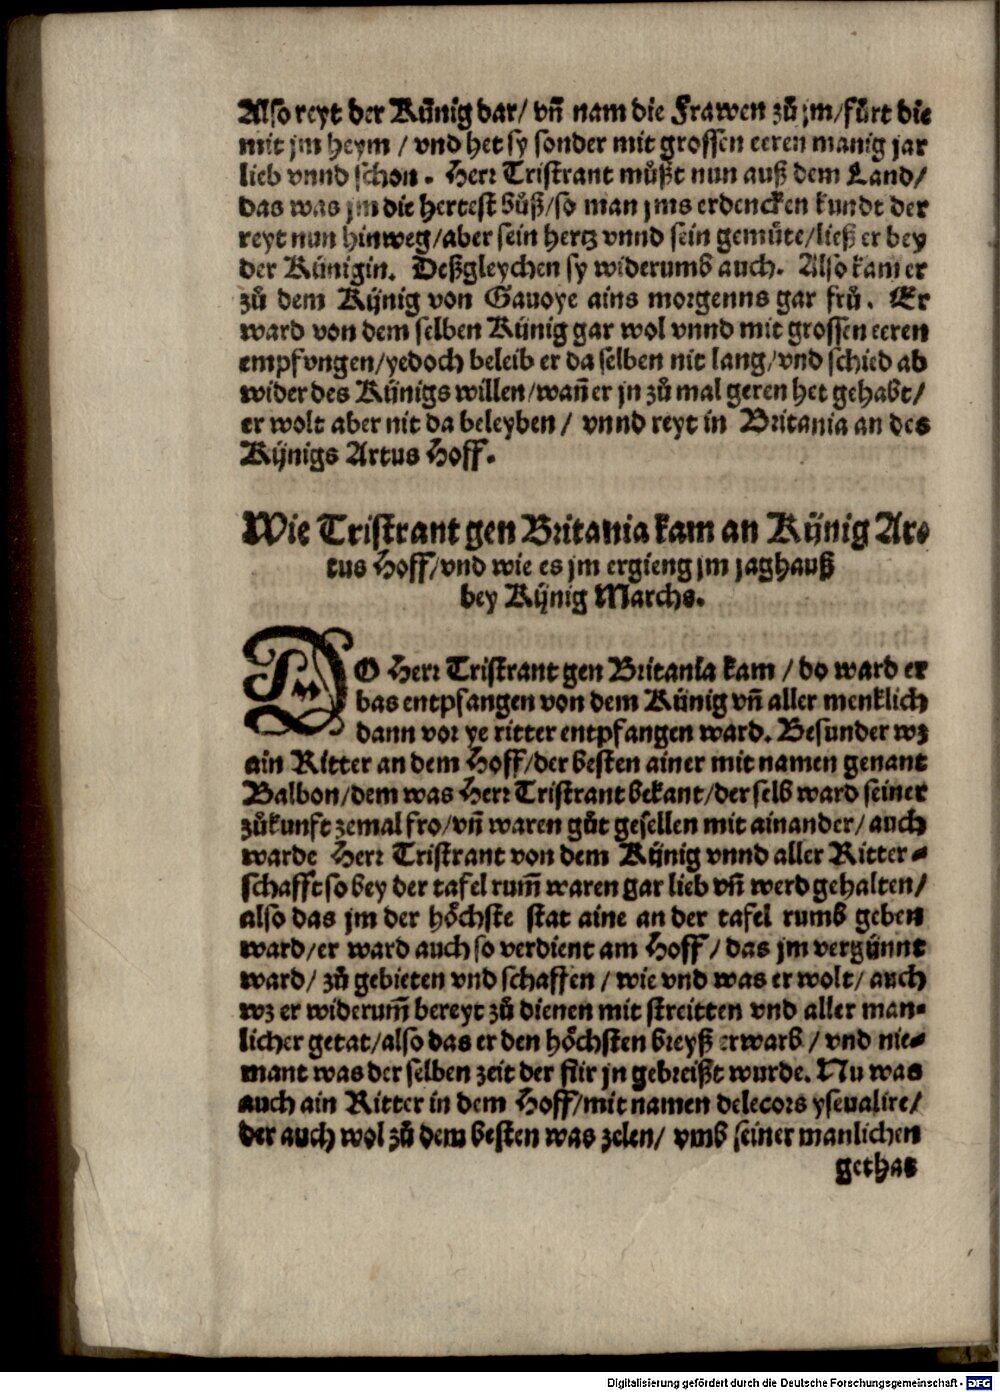 Also reyt der Künig dar/ vñ nam die Frawen zů jm/fůrt die
mit jm heym / vnd het sy sonder mit grossen eeren manig jar
lieb vnnd schon. Herr Tristrant můßt nun auß dem Land/
das was jm die hertest bůß/so man jms erdencken kundt der
reyt nun hinweg/aber sein hertz vnnd sein gemüte/ließ er bey
der Künigin. Deßgleychen sy widerumb auch. Also kam er
zů dem Kijnig von Gauoye ains morgenns gar frů. Er
ward von dem selben Künig gar wol vnnd mit grossen eeren
empfvngen/yedoch beleib er da selben nit lang/vnd schied ab
wider des Kijnigs willen/wañ er jn zů mal geren het gehabt/
er wolt aber nit da beleyben / vnnd reyt in Britania an des
Kijnigs Artus Hoff.
Wie Tristrant gen Britania kam an Kijnig Ar-
tus Hoff/vnd wie es jm ergieng jm jaghauß
bey Kijnig Marchs.
DO Herr Tristrant gen Britanla kam / do ward er
bas entpfangen von dem Künig vñ aller menklich
dann vor ye ritter entpfangen ward. Besunder wz
ain Ritter an dem Hoff/der besten ainer mit namen genant
Balbon/dem was Herr Tristrant bekant/der selb ward seiner
zůkunft zemal fro/vñ waren gůt gesellen mit ainander/ auch
warde Herr Tristrant von dem Kijnig vnnd aller Ritter-
schafft so bey der tafel rum̃ waren gar lieb vñ werd gehalten/
also das jm der höchste stat aine an der tafel rumb geben
ward/er ward auch so verdient am Hoff/ das jm vergünnt
ward/ zů gebieten vnd schaffen / wie vnd was er wolt/ auch
wz er widerum̃ bereyt zů dienen mit streitten vnd aller man-
licher getat/also das er den höchsten breyß erwarb / vnd nie-
mant was der selben zeit der fůr jn gebreißt wurde. Nu was
auch ain Ritter in dem Hoff/mit namen delecors yseualire/
der auch wol zů dem besten was zelen/ vmb seiner manlichen
gethat